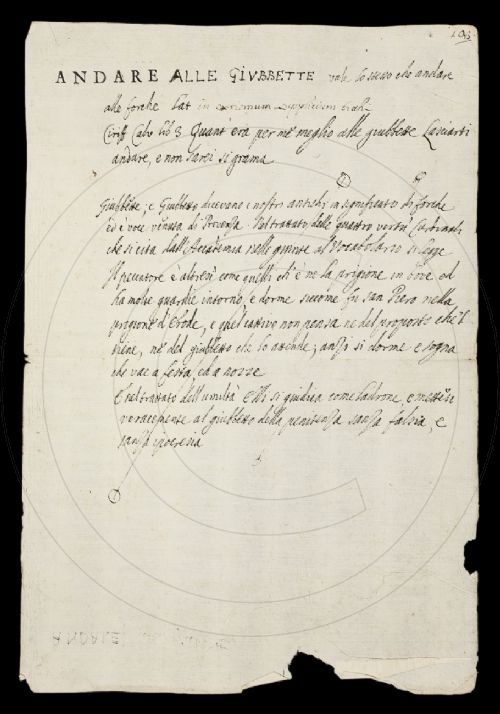 ANDARE ALLE GIVBBETTE vale lo stesso che andare
alle forche Lat in extremum supplicium trahi
Ciriff Calv lib 3 Quant' era per me meglio alle giubbette Lasciarti
andare, e non sarei sì grama
Giubbette, e Giubbetto dicevano i nostri antichi in significato di forche
ed è voce venuta di Provenza Nel trattato delle quattro vertù Cardinali
che si cita dall'Accademia nelle giunte al Vocabolario si legge
Il peccatore è altresì come quelli ch' è ne la prigione in bove ed
ha molte guardie intorno, e dorme siccome fu san Piero nella
prigione d'Erode, e quel cattivo non pensa nè del proposto che 'l
tiene, nè del giubbetto che lo attende; anzi si dorme e sogna
che vae a festa, ed a nozze
E nel trattato dell'umiltà Elli si giudica come ladrone, e mettesi
veracemente al giubbetto della penitenza sanza falsia, e
sanza ipocresia